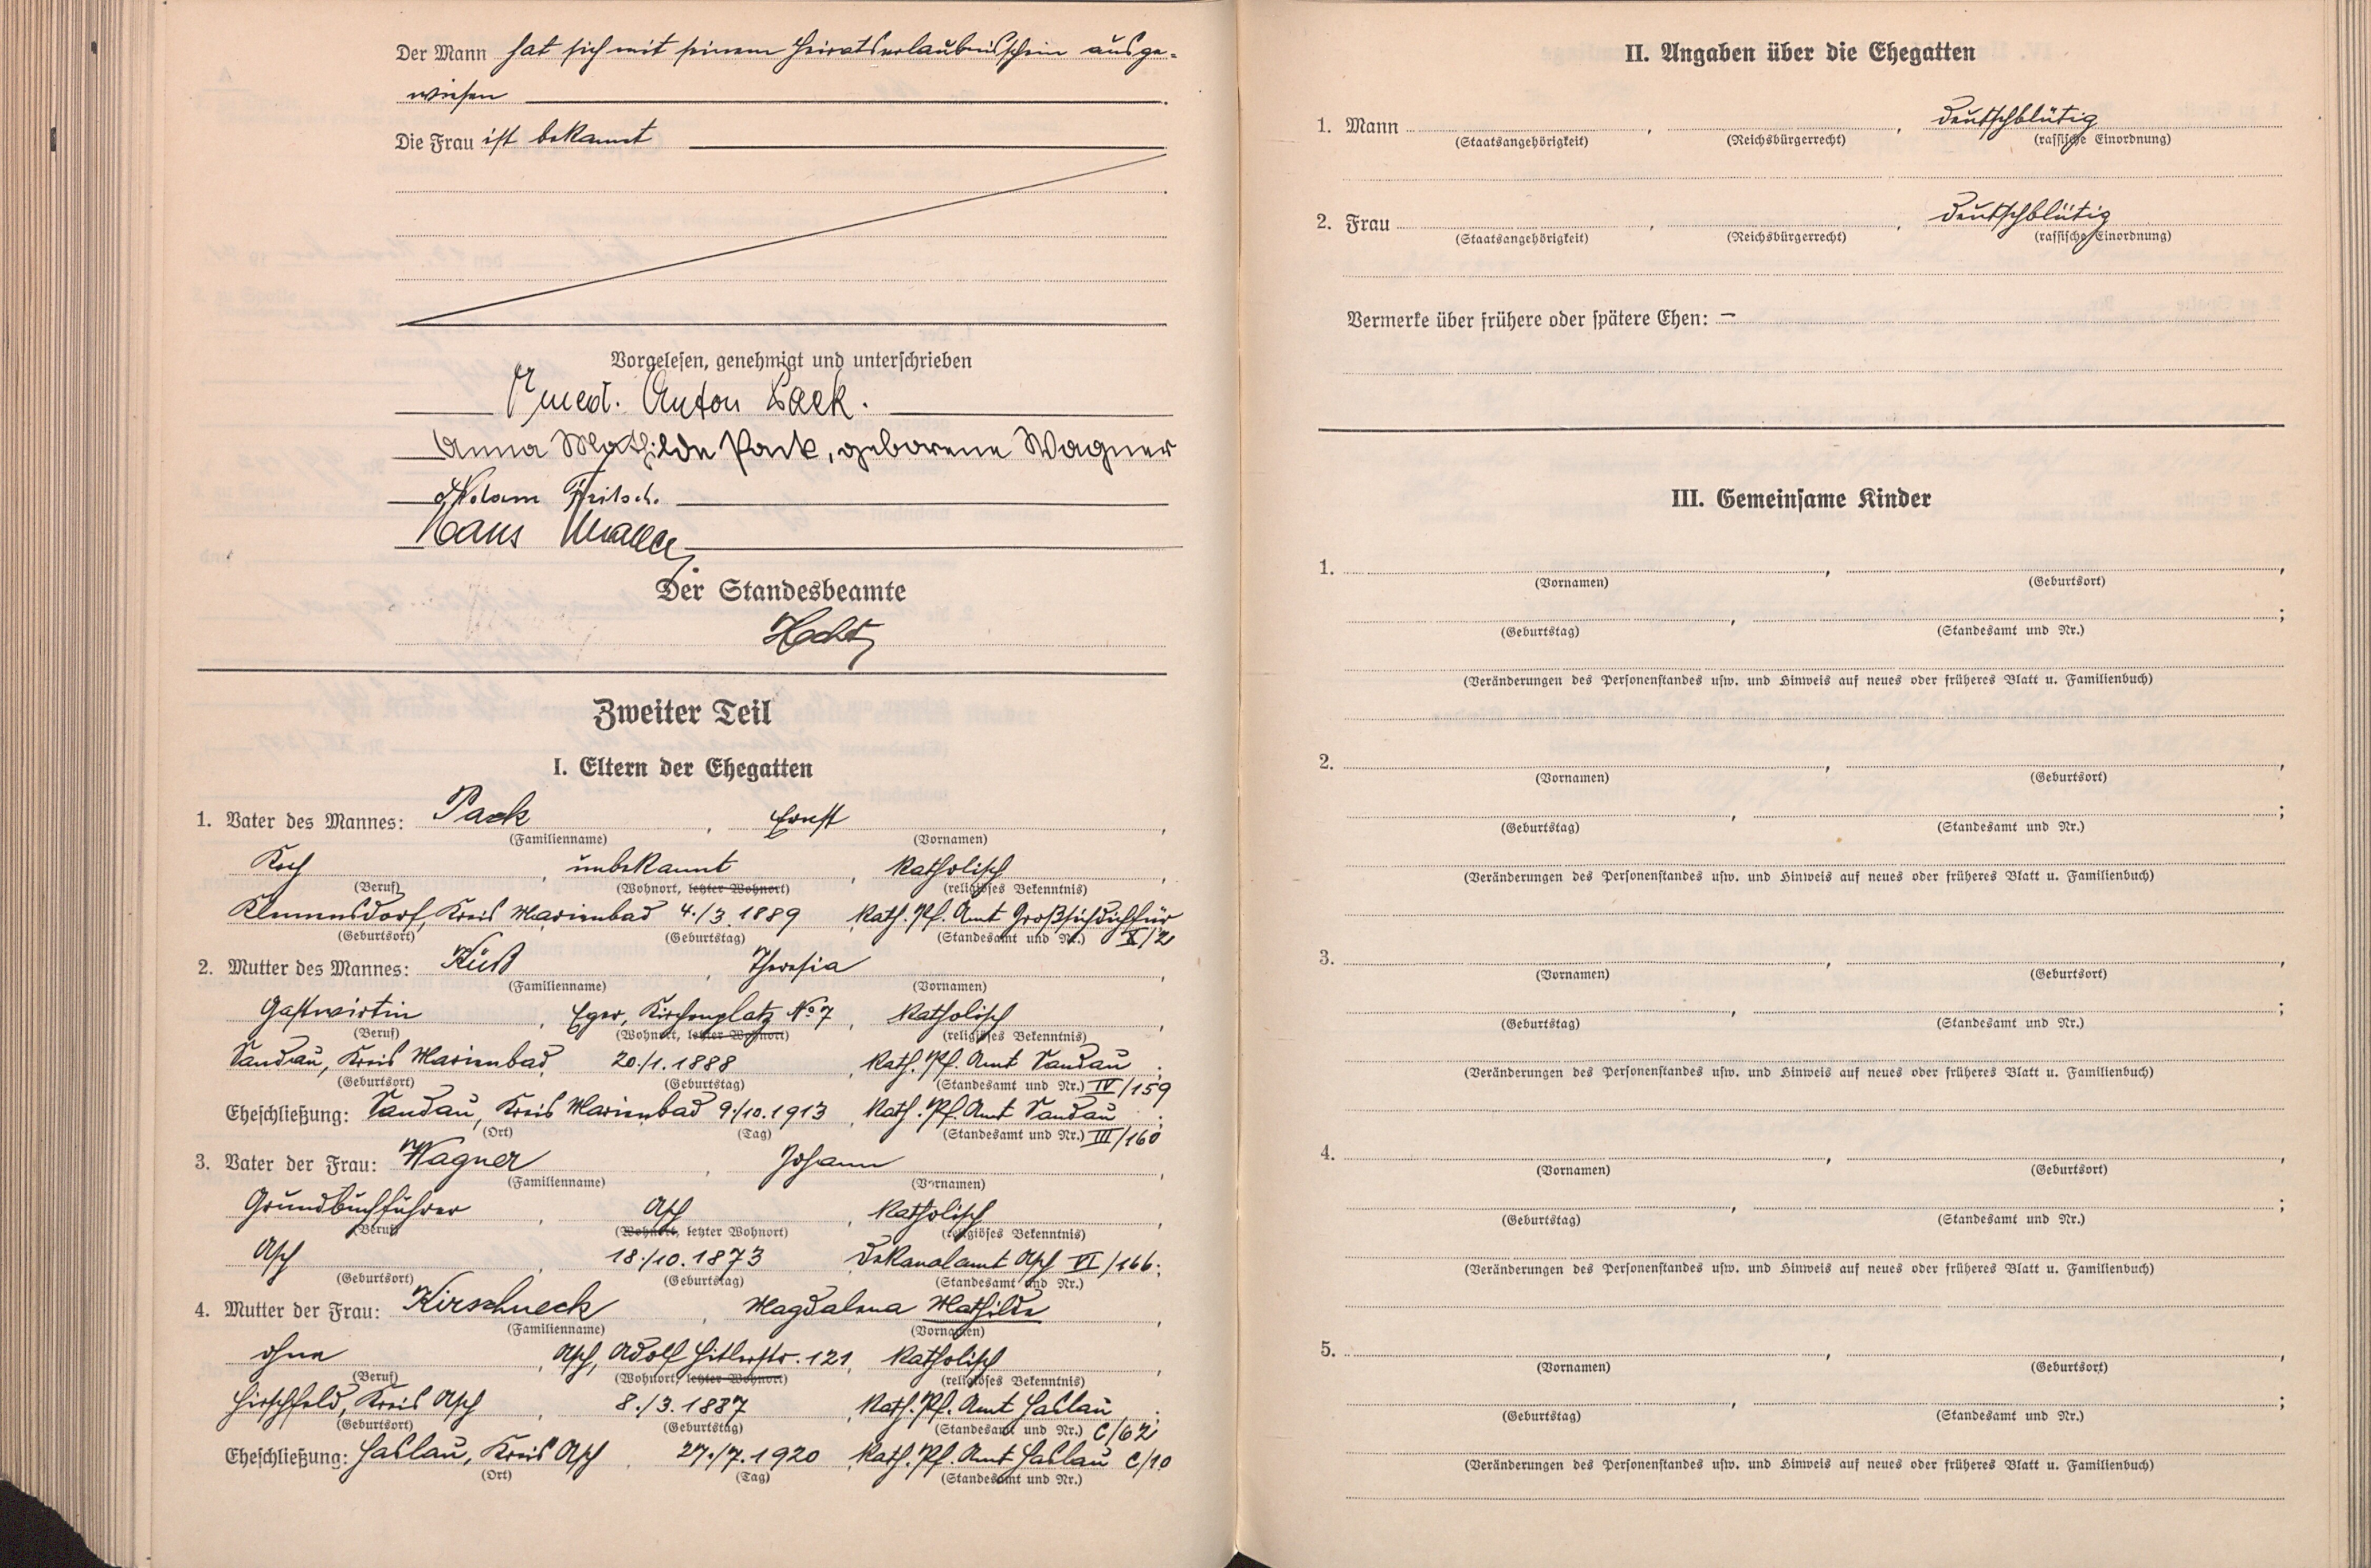 Der Mann hat sich mit seinem Heiratserlaubnisschein ausge-
wiesen
Die Frau ist bekannt
Vorgelesen, genehmigt und unterschrieben
med. Anton Pack.
Anna Mathilde Pack, geborene Wagner
Fritsch.
Hans
Der Standesbeamte
Zweiter Teil
I. Eltern der Ehegatten
1. Vater des Mannes: Pack, Ernst,
(Familienname) (Vornamen)
Koch, unbekannt, katholisch,
(Beruf) (Wohnort, letzter Wohnort) (religiöses Bekenntnis)
Klemensdorf, Kreis Marienbad 4./3.1889 Kath. Pf. Amt Großsichdichfür
(Geburtsort) (Geburtstag) (Standesamt und Nr.) X/2
2. Mutter des Mannes: Küß, Theresia,
(Familienname) (Vornamen)
Gastwirtin, Eger, Kirchenplatz No 7, katholisch,
(Beruf) (Wohnort, letzter Wohnort) (religiöses Bekenntnis)
Sandau, Kreis Marienbad, 20./1.1888, Kath. Pf. Amt Sandau;
(Geburtsort) (Geburtstag) (Standesamt und Nr.) IV/159
Eheschließung: Sandau, Kreis Marienbad 9./10.1913, Kath. Pf. Amt Sandau;
(Ort) (Tag) (Standesamt und Nr.) III/160
3. Vater der Frau: Wagner, Johann,
(Familienname) (Vornamen)
Grundbuchführer, Asch, katholisch,
(Beruf) (Wohnort, letzter Wohnort) (religiöses Bekenntnis)
Asch, 18./10.1873 Dekanalamt Asch VI/166;
(Geburtsort) (Geburtstag) (Standesamt und Nr.)
4. Mutter der Frau: Kirschneck, Magdalena Mathilde,
(Familienname) (Vornamen)
ohne, Asch, Adolf Hitlerstr. 121, katholisch,
(Beruf) (Wohnort, letzter Wohnort) (religiöses Bekenntnis)
Hirschfeld, Kreis Asch, 8./3.1887, Kath. Pf. Amt Haslau;
(Geburtsort) (Geburtstag) (Standesamt und Nr.) C/62
Eheschließung: Haslau, Kreis Asch, 27./7.1920, Kath. Pf. Amt Haslau C/10
(Ort) (Tag) (Standesamt und Nr.)
II. Angaben über die Ehegatten
1. Mann , , deutschblütig
(Staatsangehörigkeit) (Reichsbürgerrecht) (rassische Einordnung)
2. Frau , , deutschblütig
(Staatsangehörigkeit) (Reichsbürgerrecht) (rassische Einordnung)
Vermerke über frühere oder spätere Ehen: –
III. Gemeinsame Kinder
1. , ,
(Vornamen) (Geburtsort)
, ;
(Geburtstag) (Standesamt und Nr.)
(Veränderungen des Personenstandes usw. und Hinweis auf neues oder früheres Blatt u. Familienbuch)
2. , ,
(Vornamen) (Geburtsort)
, ;
(Geburtstag) (Standesamt und Nr.)
(Veränderungen des Personenstandes usw. und Hinweis auf neues oder früheres Blatt u. Familienbuch)
3. , ,
(Vornamen) (Geburtsort)
, ;
(Geburtstag) (Standesamt und Nr.)
(Veränderungen des Personenstandes usw. und Hinweis auf neues oder früheres Blatt u. Familienbuch)
4. , ,
(Vornamen) (Geburtsort)
, ;
(Geburtstag) (Standesamt und Nr.)
(Veränderungen des Personenstandes usw. und Hinweis auf neues oder früheres Blatt u. Familienbuch)
5. , ,
(Vornamen) (Geburtsort)
, ;
(Geburtstag) (Standesamt und Nr.)
(Veränderungen des Personenstandes usw. und Hinweis auf neues oder früheres Blatt u. Familienbuch)